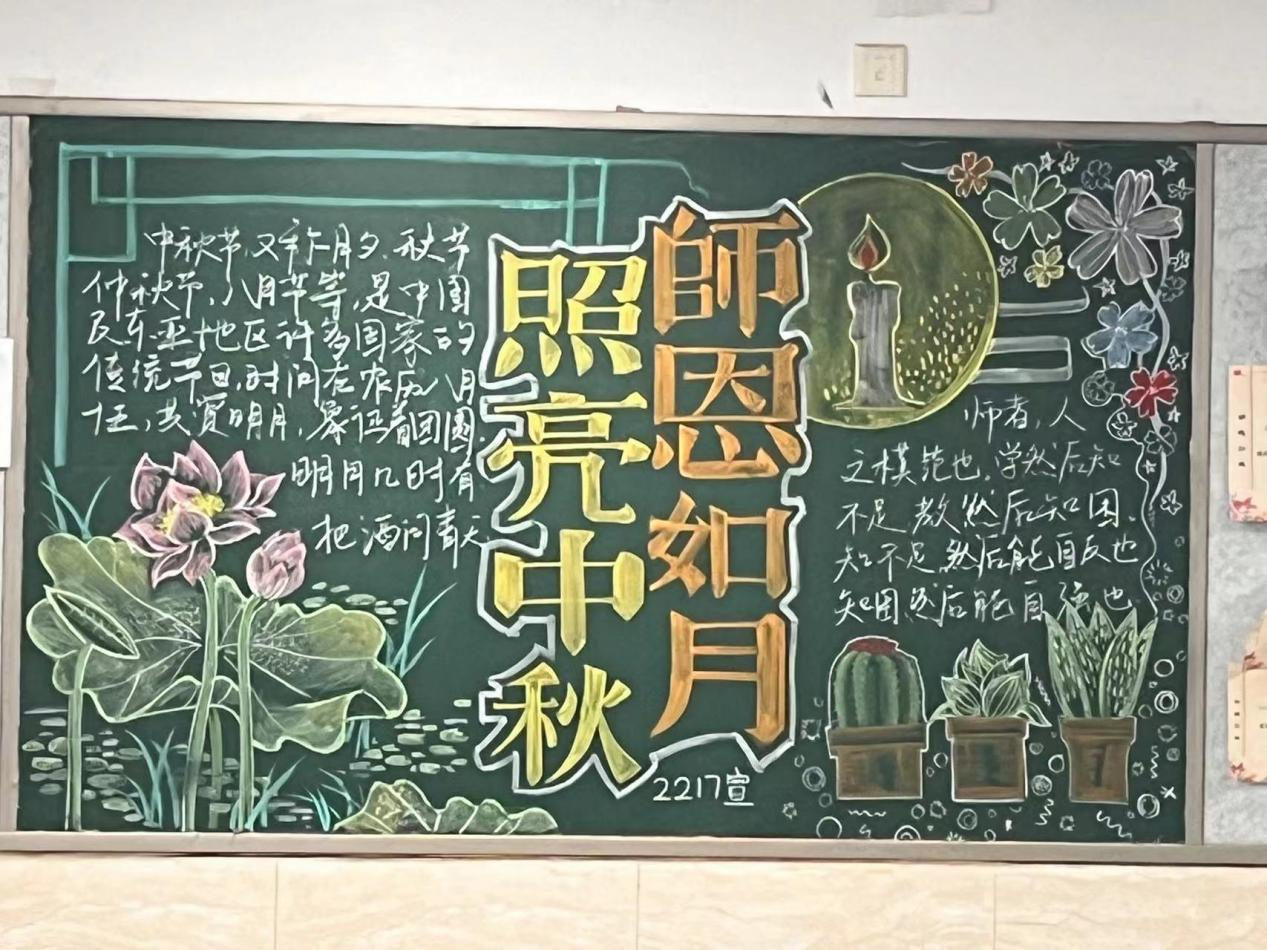 中秋节,又称月夕、秋节
仲秋节,八月节等,是中国
及东亚地区许多国家的
传统节日,时间在农历八月
共赏明月,象证着团圆.
明月几时有
把酒问青天.
師恩如月
照亮中秋
2217宣
师者,人
之模范也.学然后知
不足,教然后知困.
知不足,然后能自反也
知困然后能自强也